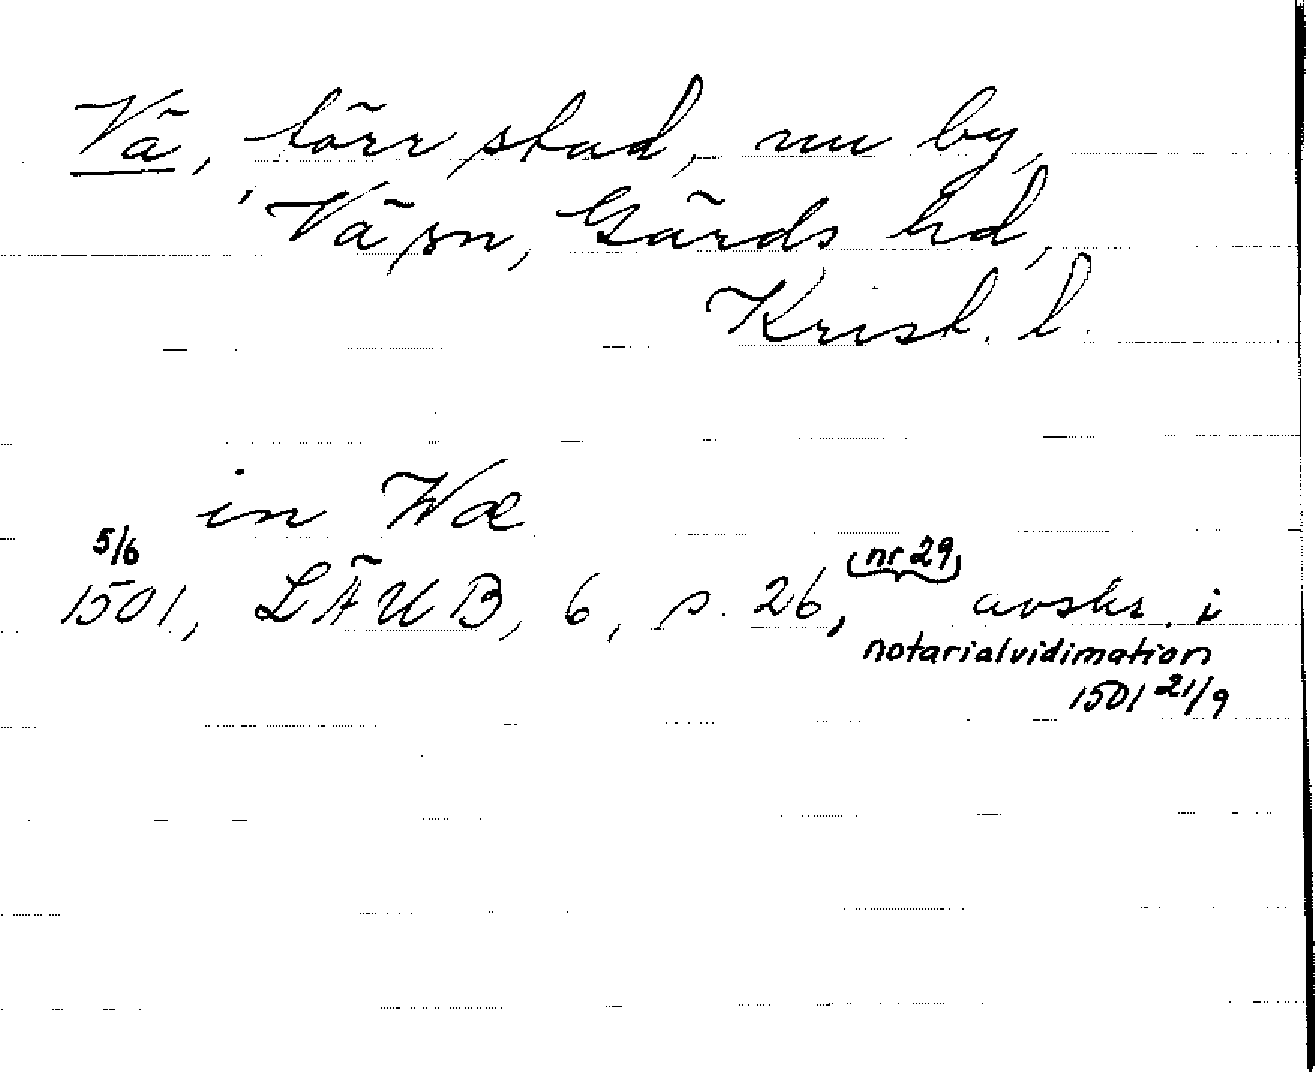 Vä, förr stad, nu by,
Vä sn, Gärds hd,
Krist. l.
in Wæ
5/6
1501, LÄUB, 6, s. 26, (nr 29) avskr. i
notarialvidimation
1501 21/9